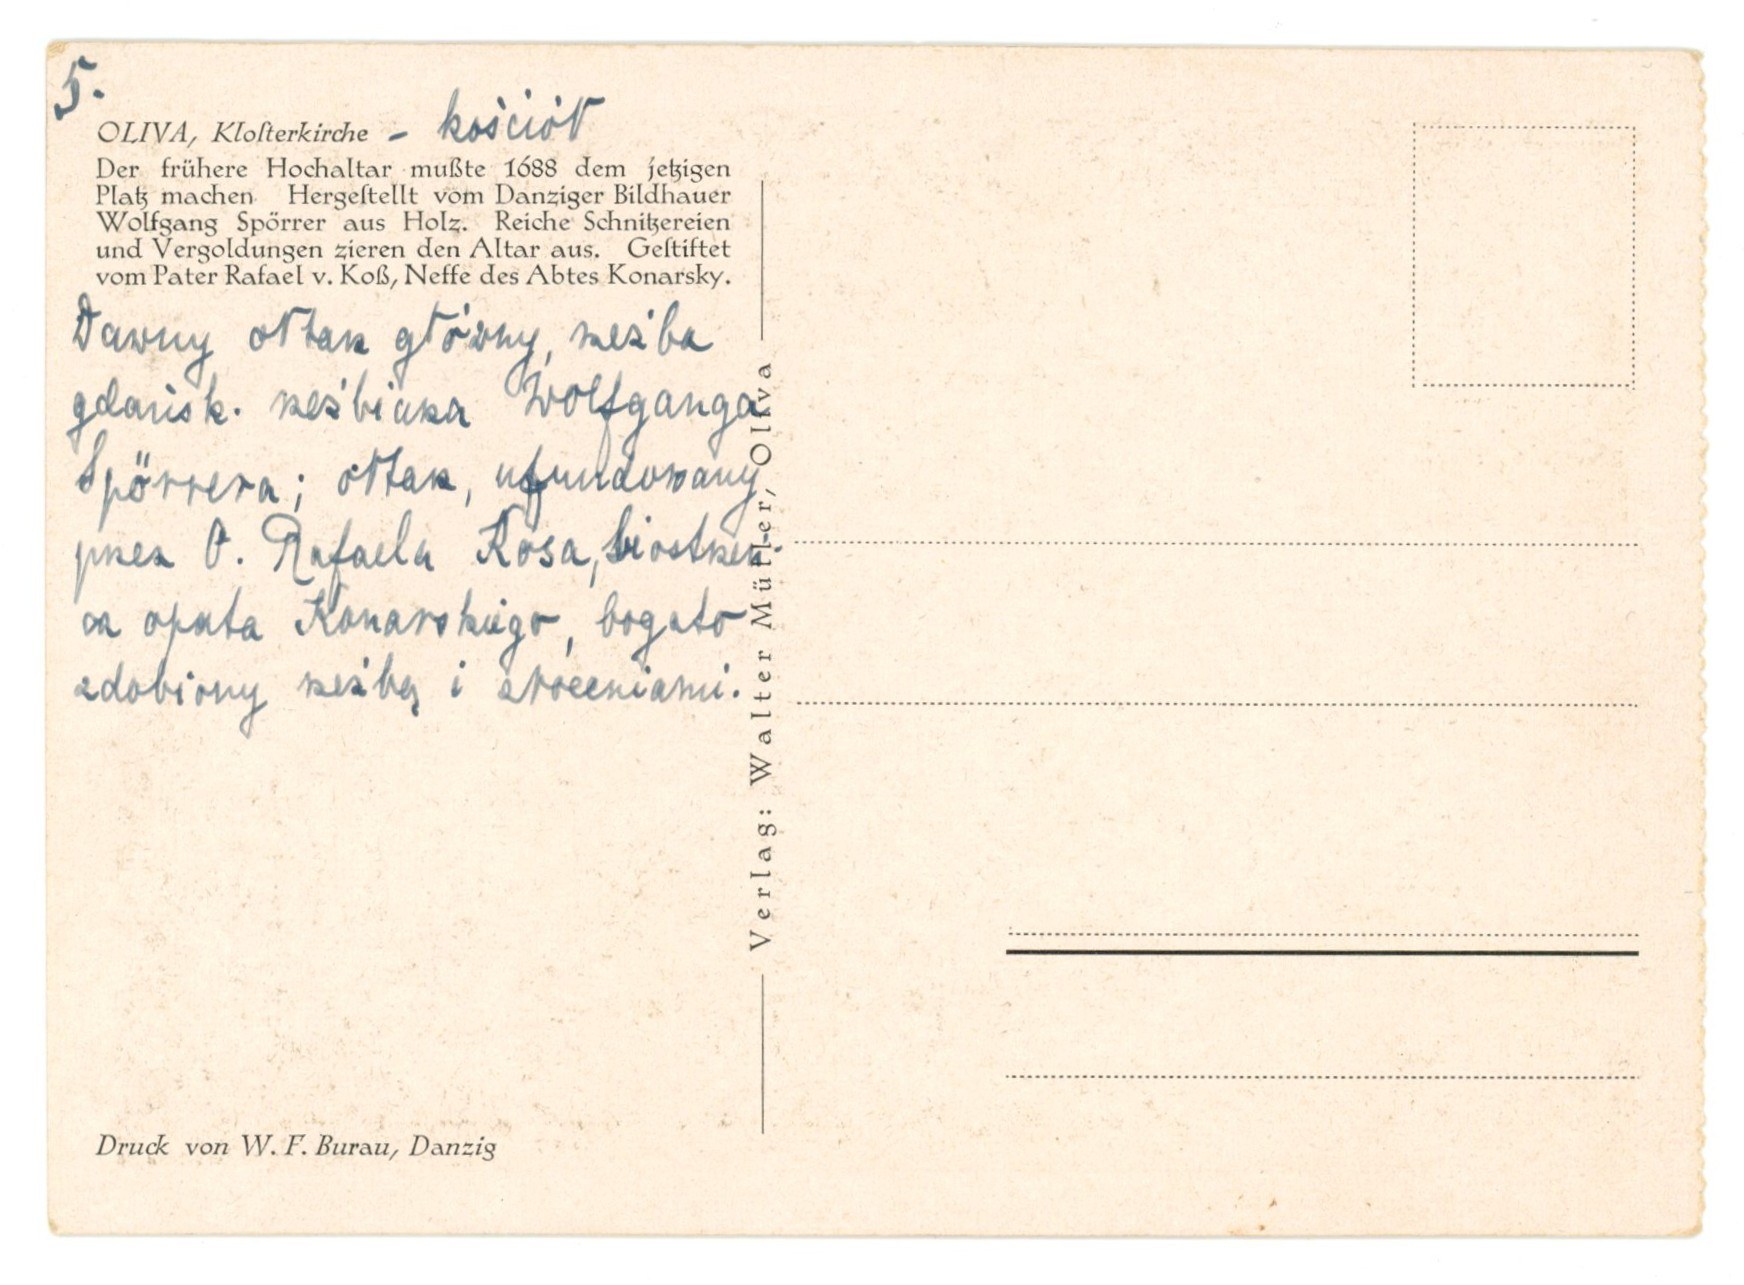 5.
OLIVA, Kloſterkirche - kościół
Der frühere Hochaltar mußte 1688 dem jetzigen
Platz machen Hergeſtellt vom Danziger Bildhauer
Wolfgang Spörrer aus Holz. Reiche Schnitzereien
und Vergoldungen zieren den Altar aus. Geſtiftet
vom Pater Rafael v. Koß, Neffe des Abtes Konarsky.
Dawny ołtarz główny, rzeźba
gdańsk. rzeźbiarza Wolfganga
Spörrera; ołtarz, ufundowany
przez O. Rafaela Kosa, siostrzeń-
ca opata Konarskiego, bogato
zdobiony rzeźbą i złoceniami.
Verlag: Walter Müller, Oliva
Druck von W. F. Burau, Danzig